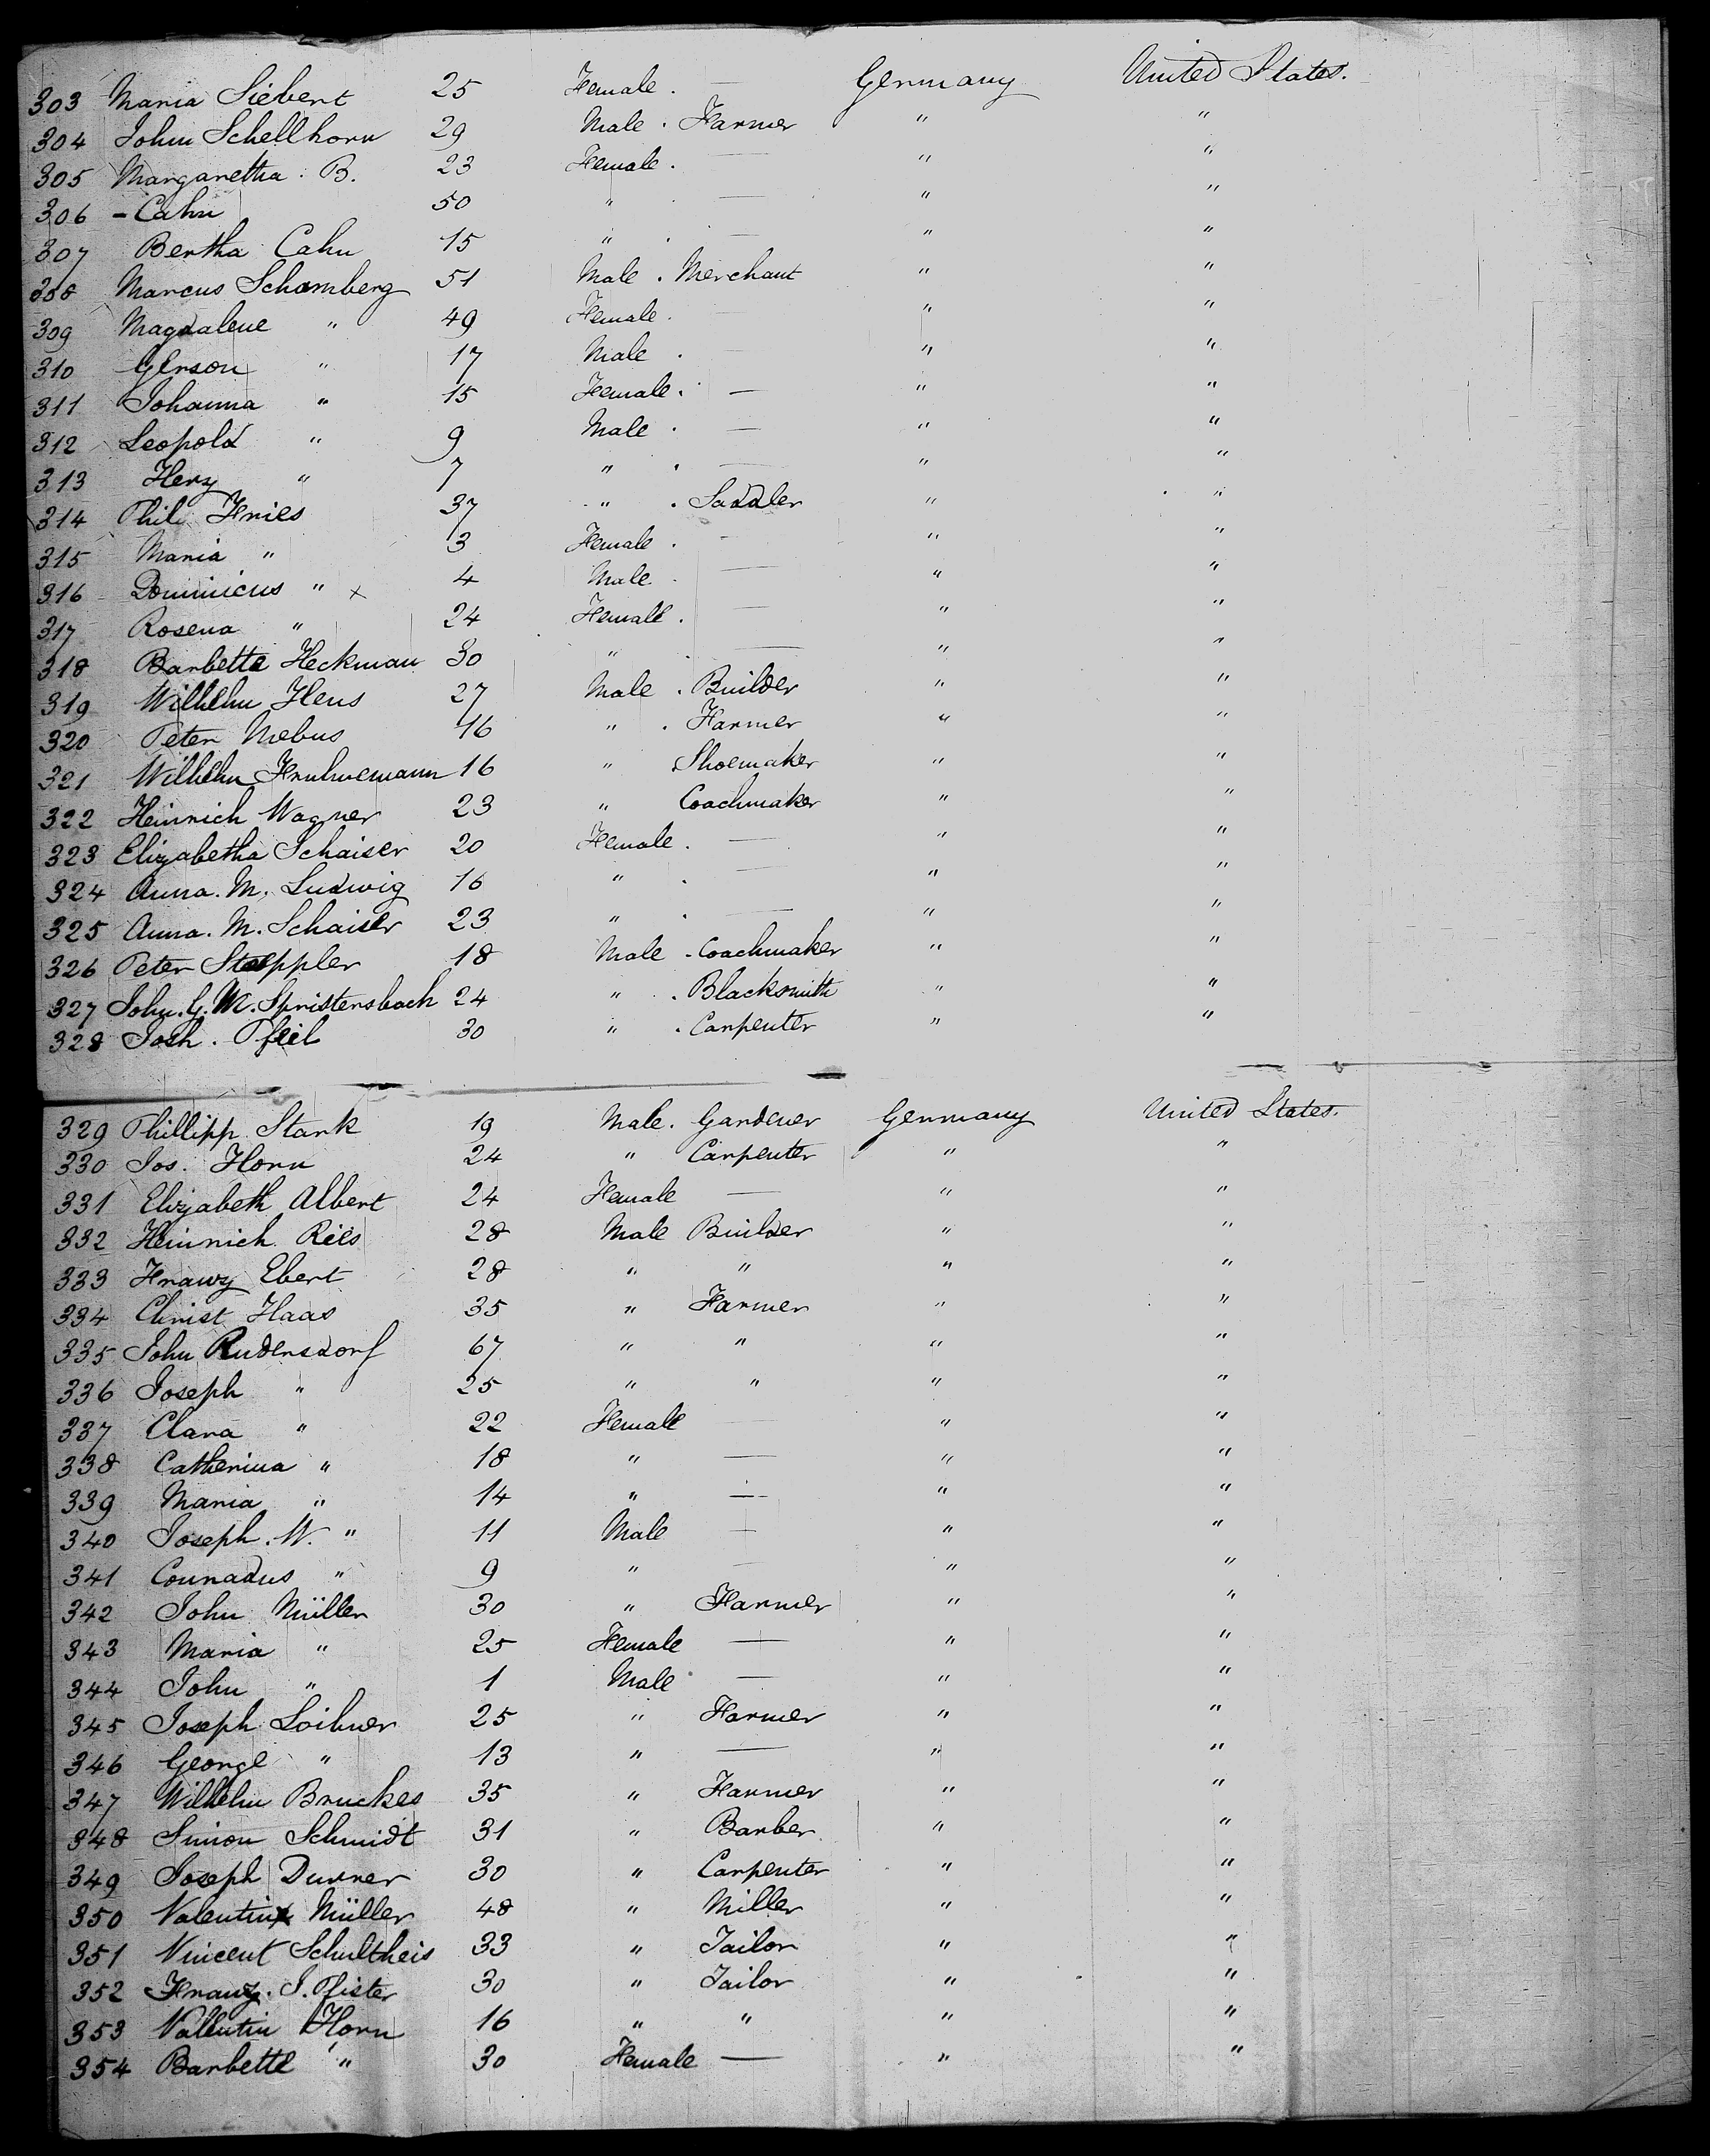 303 Maria Siebert 25 Female. — Germany United States.
304 John Schellhorn 29 Male. Farmer " "
305 Margaretha. B. 23 Female. — " "
306 - Cahn 50 " — " "
307 Bertha Cahn 15 " — " "
308 Marcus Schomberg 51 Male. Merchant " "
309 Magdalene " 49 Female. — " "
310 Gerson " 17 Male. — " "
311 Johanna " 15 Female. — " "
312 Leopold " 9 Male. — " "
313 Herz " 7 " . — " "
314 Phil. Fries 37 " . Saddler " "
315 Maria " 3 Female. — " "
316 Dominicus " x 4 Male. — " "
317 Rosena " 24 Female. — " "
318 Barbetta Heckman 30 " . — " "
319 Wilhelm Heus 27 Male. Builder " "
320 Peter Mebus 16 " . Farmer " "
321 Wilhelm 16 " Shoemaker " "
322 Heinrich Wagner 23 " Coachmaker " "
323 Elizabetha Schaiser 20 Female. — " "
324 Anna. M. Ludwig 16 " . — " "
325 Anna. M. Schaiser 23 " . — " "
326 Peter Staeppler 18 Male - Coachmaker " "
327 John. G. M. Spristersbach 24 " . Blacksmith " "
328 Josh. Pfeil 30 " . Carpenter " "
329 Phillipp Stark 19 Male. Gardener Germany United States.
330 Jos. Horn 24 " Carpenter " "
331 Elizabeth Albert 24 Female — " "
332 Heinrich Ries 28 Male Builder " "
333 Franz Ebert 28 " " " "
334 Christ Haas 35 " Farmer " "
335 John Rudersdorf 67 " " " "
336 Joseph " 25 " " " "
337 Clara " 22 Female — " "
338 Catherina " 18 " — " "
339 Maria " 14 " — " "
340 Joseph. W. " 11 Male — " "
341 Counadus " 9 " — " "
342 John Müller 30 " Farmer " "
343 Maria " 25 Female — " "
344 John " 1 Male — " "
345 Joseph Loihner 25 " Farmer " "
346 George " 13 " — " "
347 Wilhelm Bruckes 35 " Farmer " "
348 Simon Schmidt 31 " Barber " "
349 Joseph Durner 30 " Carpenter " "
350 Valentin Müller 48 " Miller " "
351 Vincent Schultheis 33 " Tailor " "
352 Franz. J. Pfister 30 " Tailor " "
353 Vallentin Horn 16 " " " "
354 Barbette " 30 Female — " "